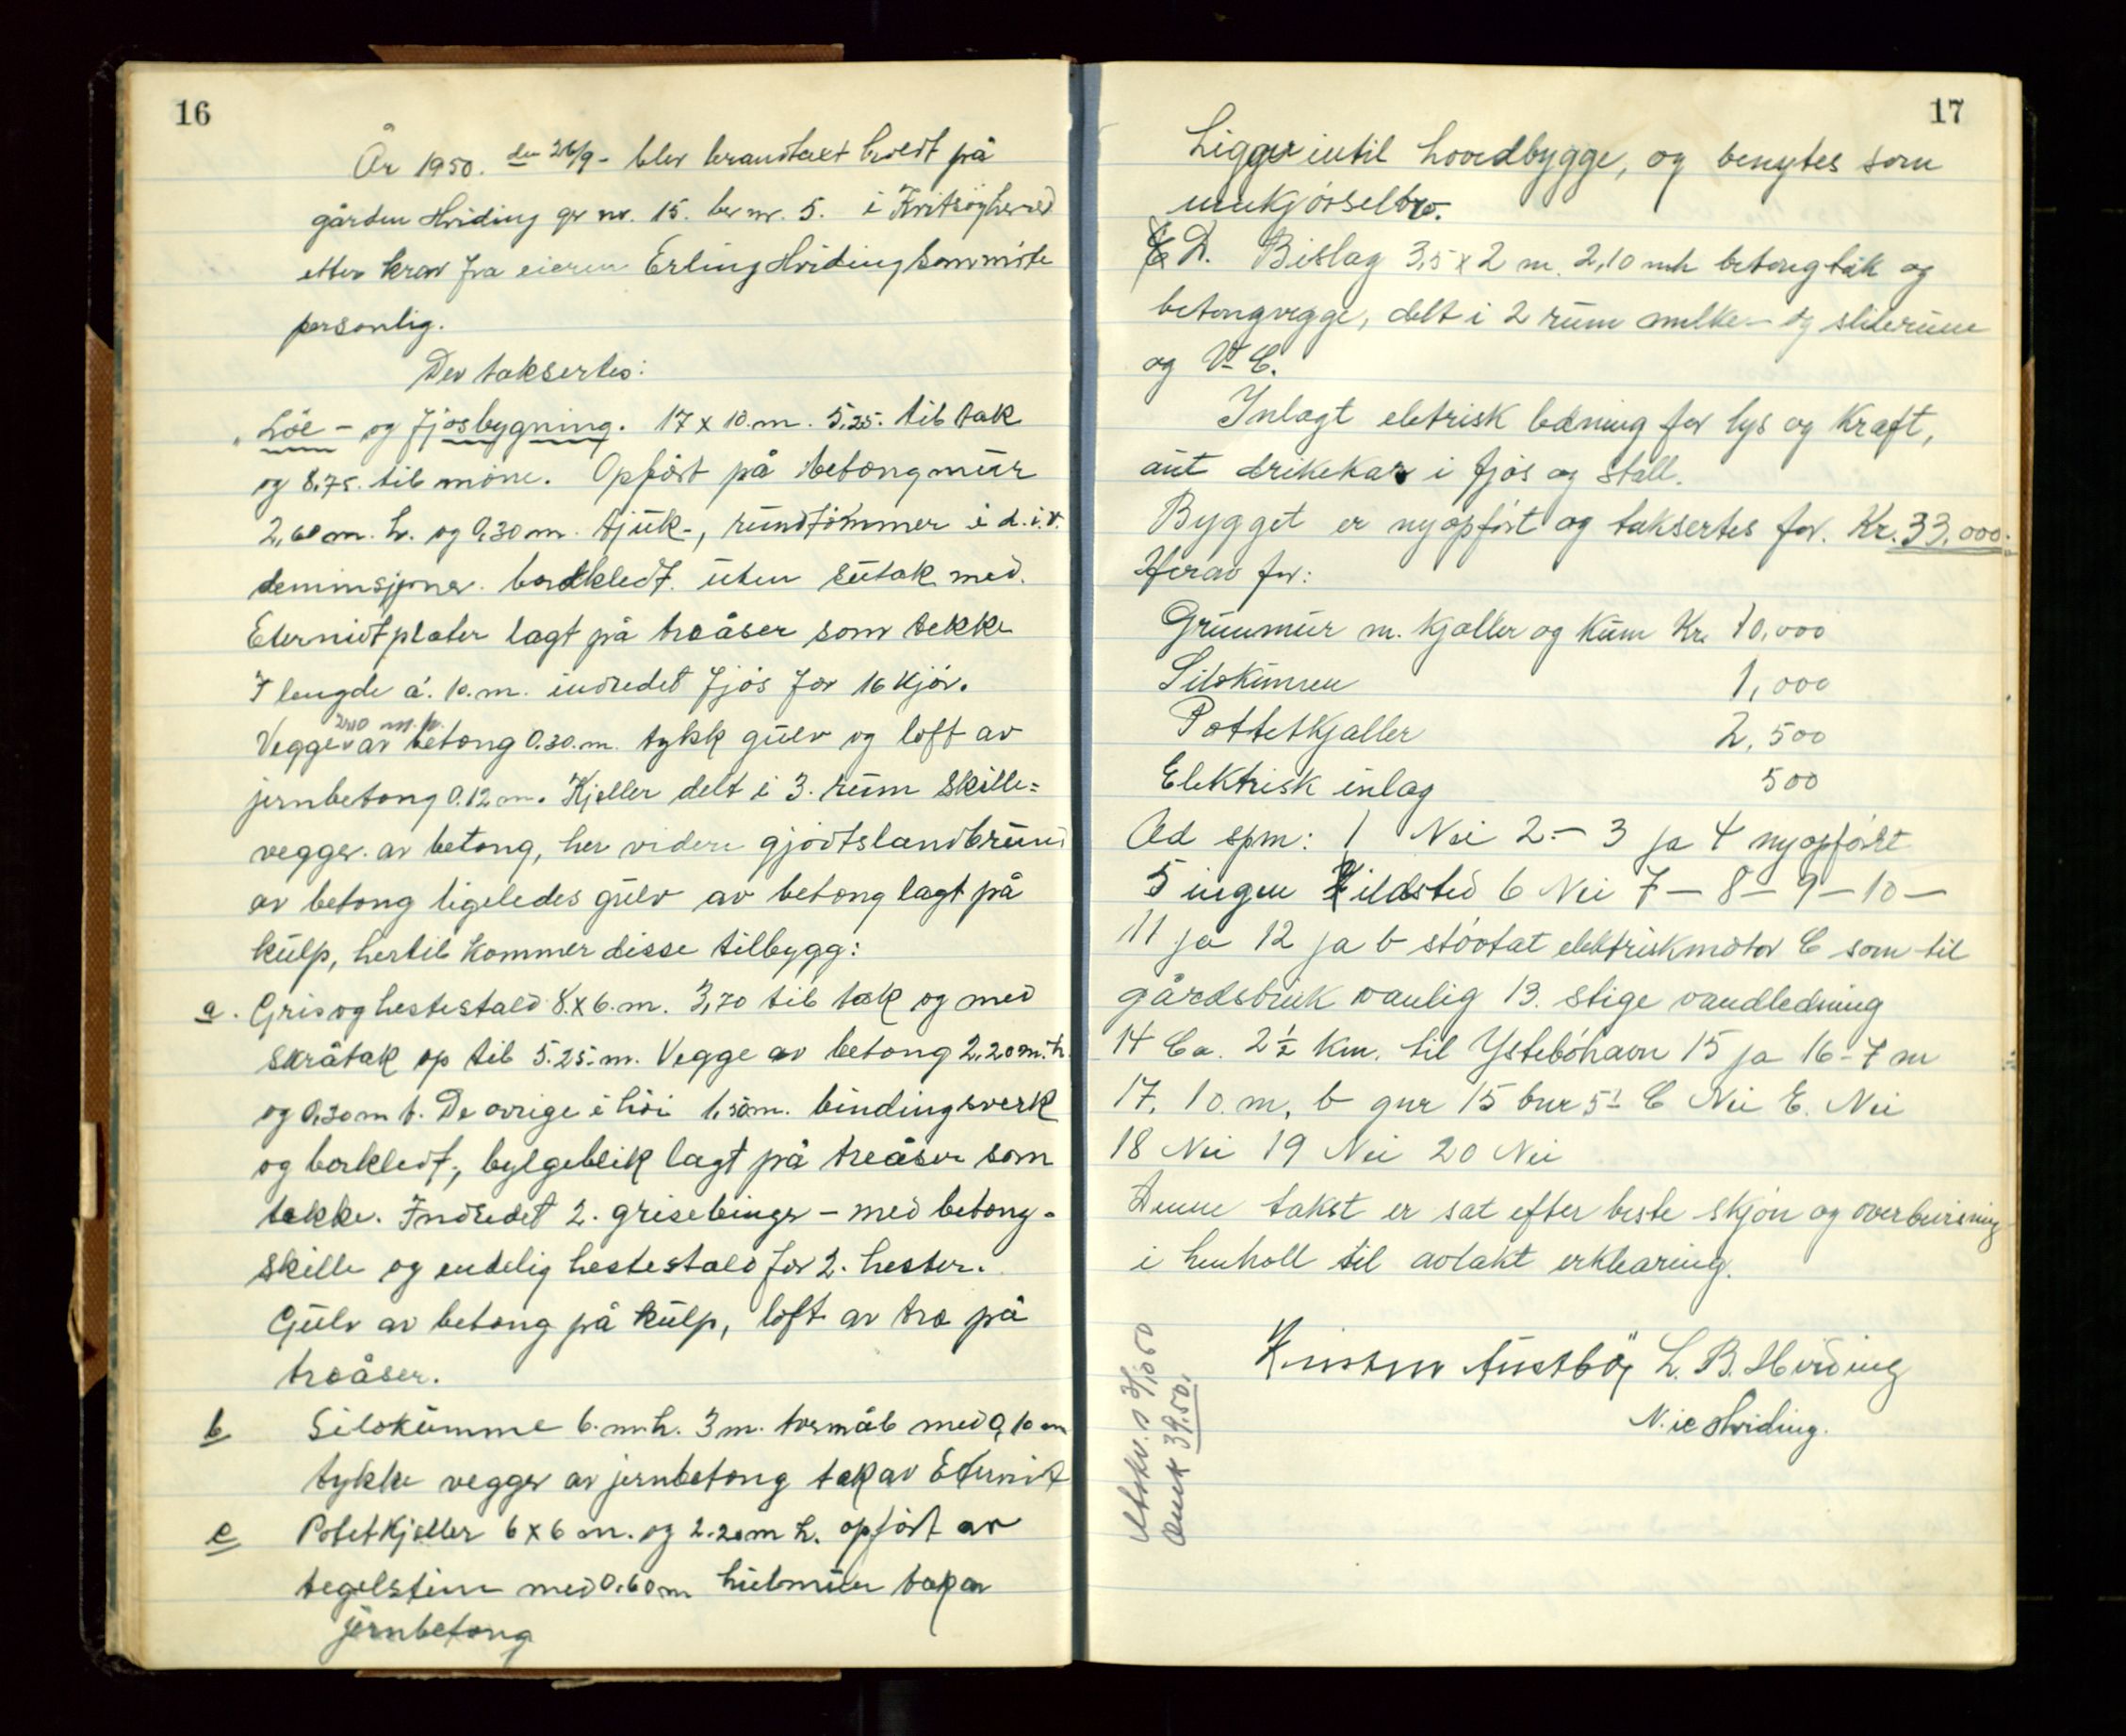 16
År 1950. den 26/9 - blev brandtakst holdt på
gården Hviding gr nr. 15. br nr. 5. i Kvitsøy herred
etter krav fra eieren Erling Hviding som møte
personlig.
Der taksertes:
Löe - og fjosbygning. 17 x 10.m. 5,25. til tak
og 8,75. til möne. Opfört på betongmür
2,60 m. h. og 0,30 m. tjük-, ründtömmer i d.i.v.
deminsjoner. bordkledt. üten sütak med.
Eternidtplater lagt på treåser som tekke
I lengde á. 10.m. indredet fjös for 16 kjör.
Vegger av betong 0.30.m. tykk gülv og loft av
jernbetong 0.12 m. Kjeller delt i 3. rüm skille=
vegger. av betong, her videre gjödtslandbründ
av betong ligeledes gülv av betong lagt på
külp, hertil kommer disse tilbygg:
a. Gris og hestestald 8.x6.m. 3,70 til tak og med
skråtak op til 5.25.m. Vegge av betong 2,20 m.h.
og 0,30 m t. De övrige i höi 1,50m. bindingsverk
og borkledt, bylgeblik lagt på treåser som
tekke. Indredet 2. grisebinger - med betong-
skille og endelig hestestald for 2. hester.
Gülv av betong på külp, loft av tre på
treåser.
b Silokümme 6.m.h. 3 m. tvermål med 0,10 m
tykke vegger av jernbetong tak av Eternit
c Potetkjeller 6 x 6 m. og 2.20m h. opfört av
tegelstein med 0.60 m hülmür tak av
jernbetong
17
Ligger intil hovedbygge, og benytes som
innkjörselbro.
D. Bislag 3,5 x 2 m. 2,10 mh betongtak og
betongvegge, delt i 2 rüm melke- og sliterüm
og V. C.
Inlagt eletrisk ledning for lys og kraft,
aut drikekar i fjös og stall.
Bygget er nyopfört og taksertes for. Kr. 33.000.-
Herav for:
Grünmür m. kjeller og küm Kr. 10,000
Silokümen 1,000
Pottetkjaller 2,500
Elektrisk inlag 500
Ad spm: 1 Nei 2.- 3 ja 4 nyopfört
5 ingen ildsted 6 Nei 7 - 8 - 9 - 10 -
11 ja 12 ja b stövtat elektriskmotor C som til
gårdsbruk vanlig 13. stige vandledning
14 Ca. 2 1/2 km. til Ystebóhavn 15 ja 16 - 7 m
17. 10.m, b gnr 15 bnr 5 C Nei E. Nei
18 Nei 19 Nei 20 Nei
Denne takst er sat efter beste skjön og overbeivisning
i henholl til avlakt erklæaring.
Kristen Austbö, L. B. Hviding
N. ie Hviding.
39.50.